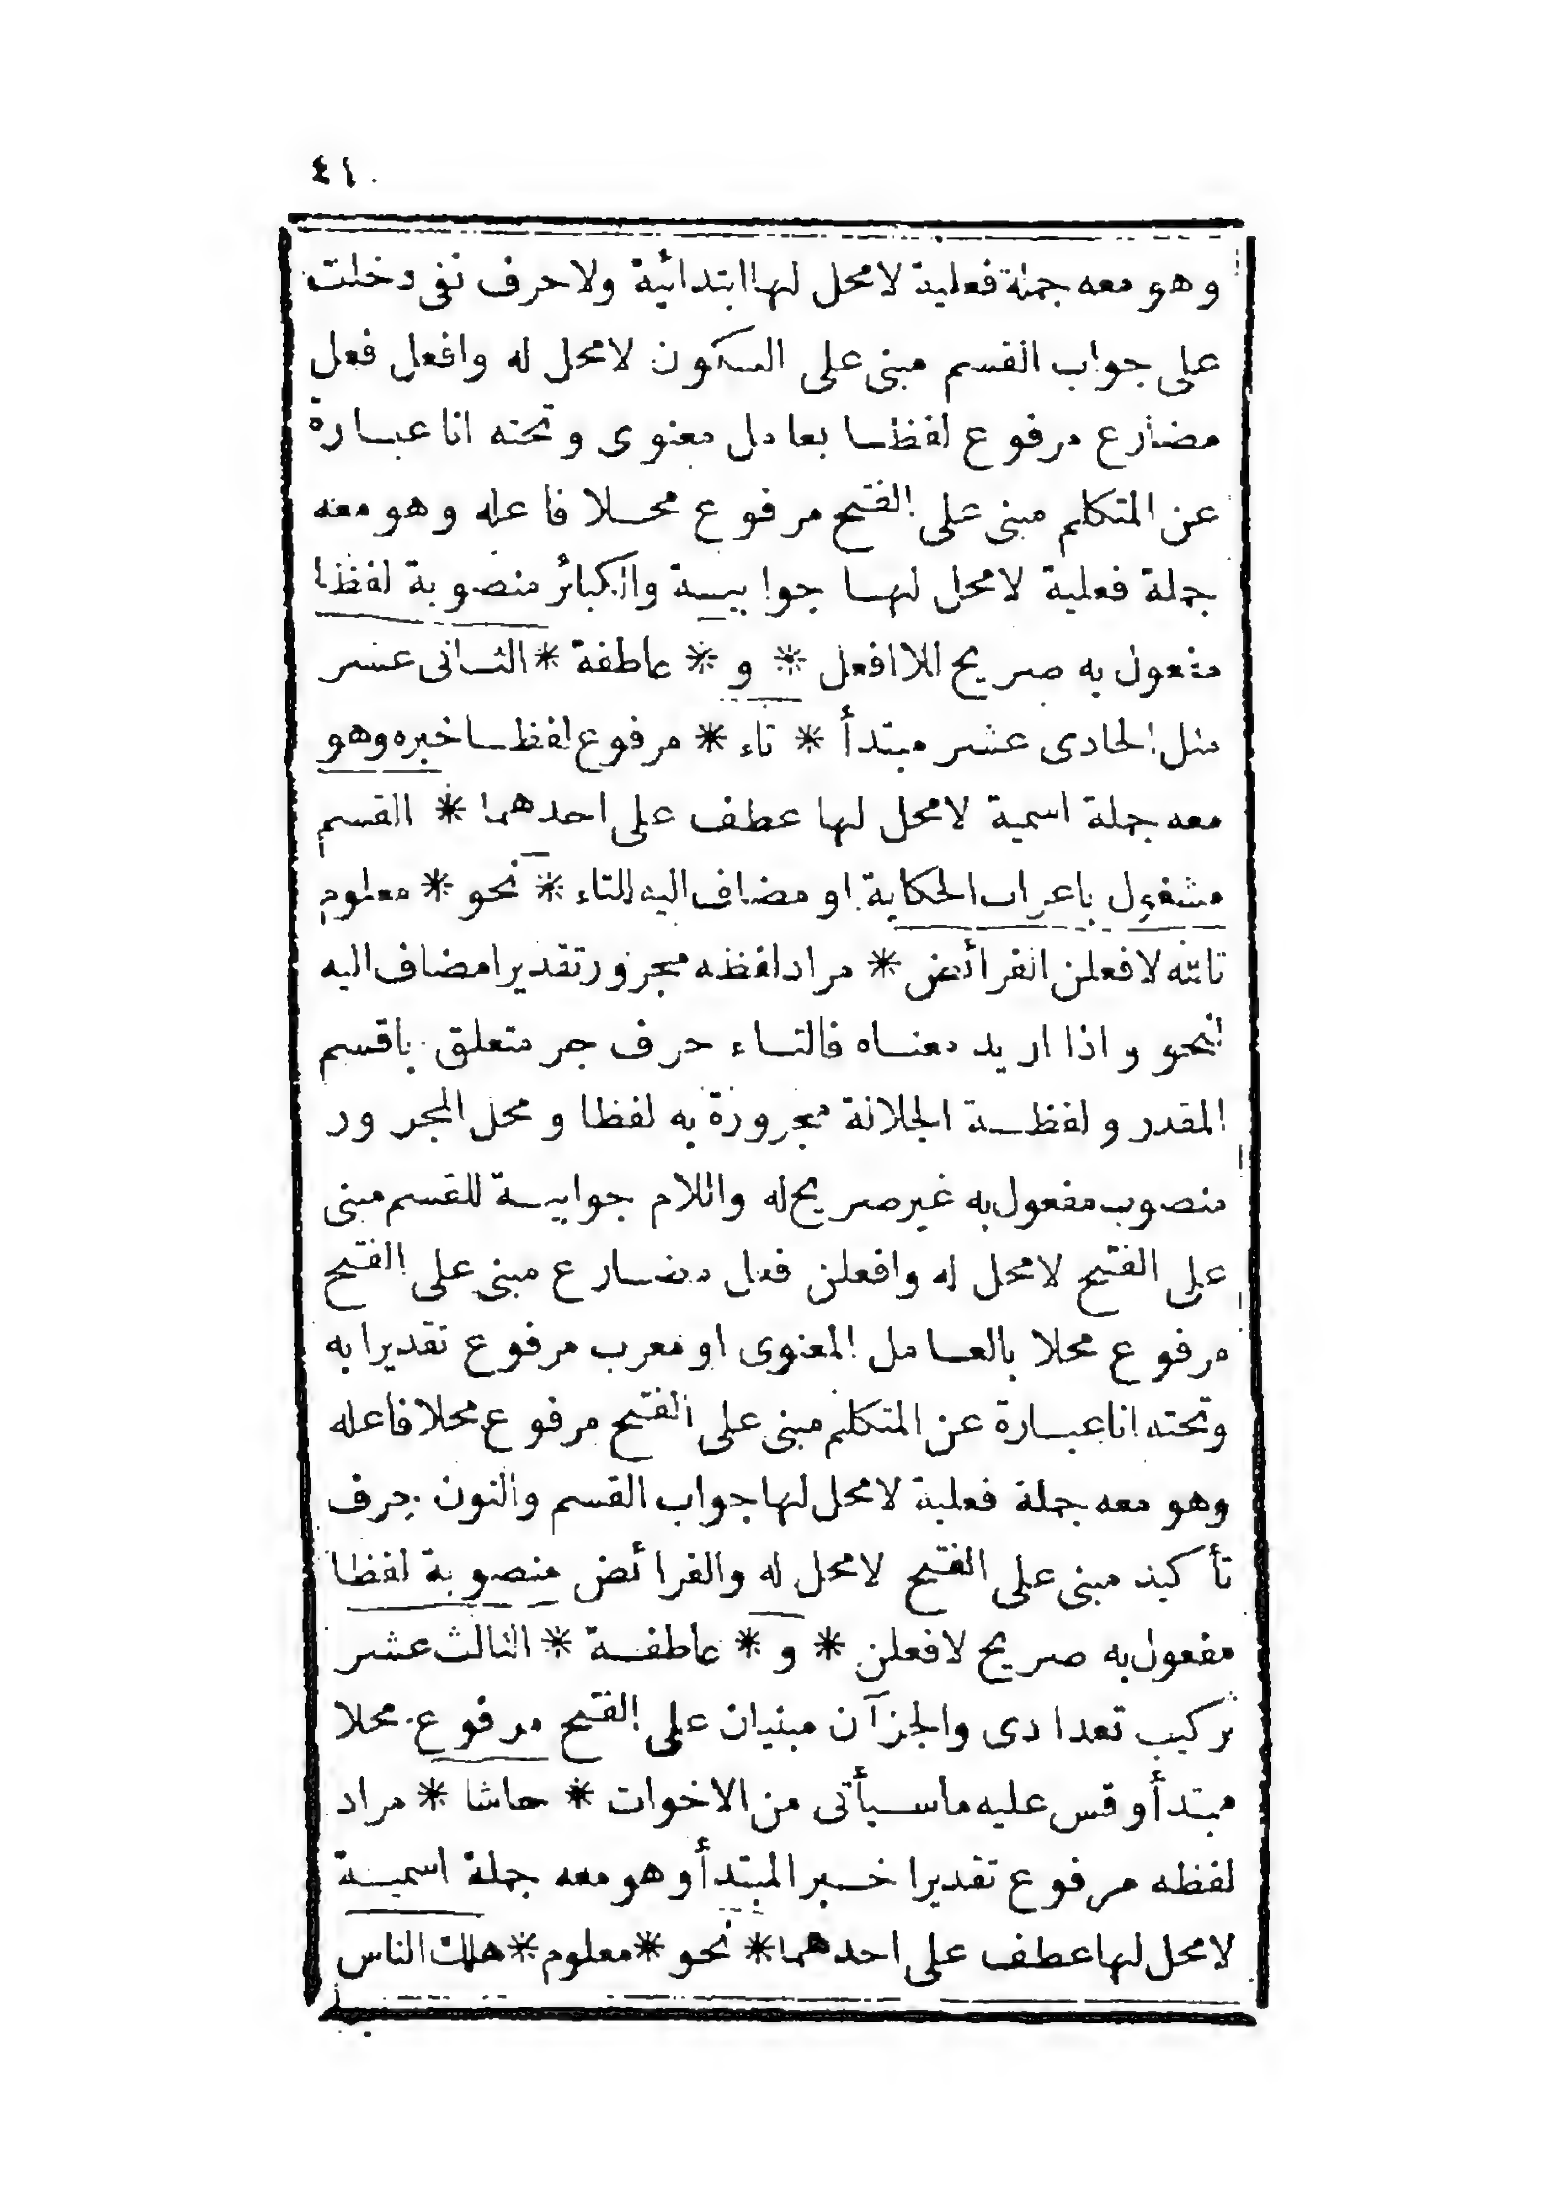 ٤١
وهو معه جملة فعلية لا محل لها ابتدائية ولا حرف نفى دخلت
على جواب القسم مبنى على السكون لا محل له وافعل فعل
مضارع مرفوع لفظا بعامل معنوى وتحته انا عبارة
عن المتكلم مبنى على الفتح مرفوع محلا فاعله وهو معه
جملة فعلية لا محل لها جوابية والكبائر منصوبة لفظا
مفعول به صريح للا افعل * و * عاطفة * الثانى عشر
مثل الحادى عشر مبتدأ * تاء * مرفوع لفظا خبره وهو
معه جملة اسمية لا محل لها عطف على احدهما * القسم
مشغول باعراب الحكاية او مضاف اليه للتاء * نحو * معلوم
تالله لافعلن الفرائض * مراد لفظه مجرور تقديرا مضاف اليه
لنحو و اذا اريد معناه فالتاء حرف جر متعلق باقسم
المقدر و لفظة الجلالة مجرورة به لفظا و محل المجرور
منصوب مفعول به غير صريح له واللام جوابية للقسم مبنى
على الفتح لا محل له وافعلن فعل مضارع مبنى على الفتح
مرفوع محلا بالعامل المعنوى او معرب مرفوع تقديرا به
وتحته انا عبارة عن المتكلم مبنى على الفتح مرفوع محلا فاعله
وهو معه جملة فعلية لا محل لها جواب القسم والنون حرف
تأكيد مبنى على الفتح لا محل له والفرائض منصوبة لفظا
مفعول به صريح لافعلن * و * عاطفة * الثالث عشر
تركيب تعدادى والجزآن مبنيان على الفتح مرفوع محلا
مبتدأ وقس عليه ما سيأتى من الاخوات * حاشا * مراد
لفظه مرفوع تقديرا خبر المبتدأ وهو معه جملة اسمية
لا محل لها عطف على احدهما * نحو * معلوم * هلك الناس